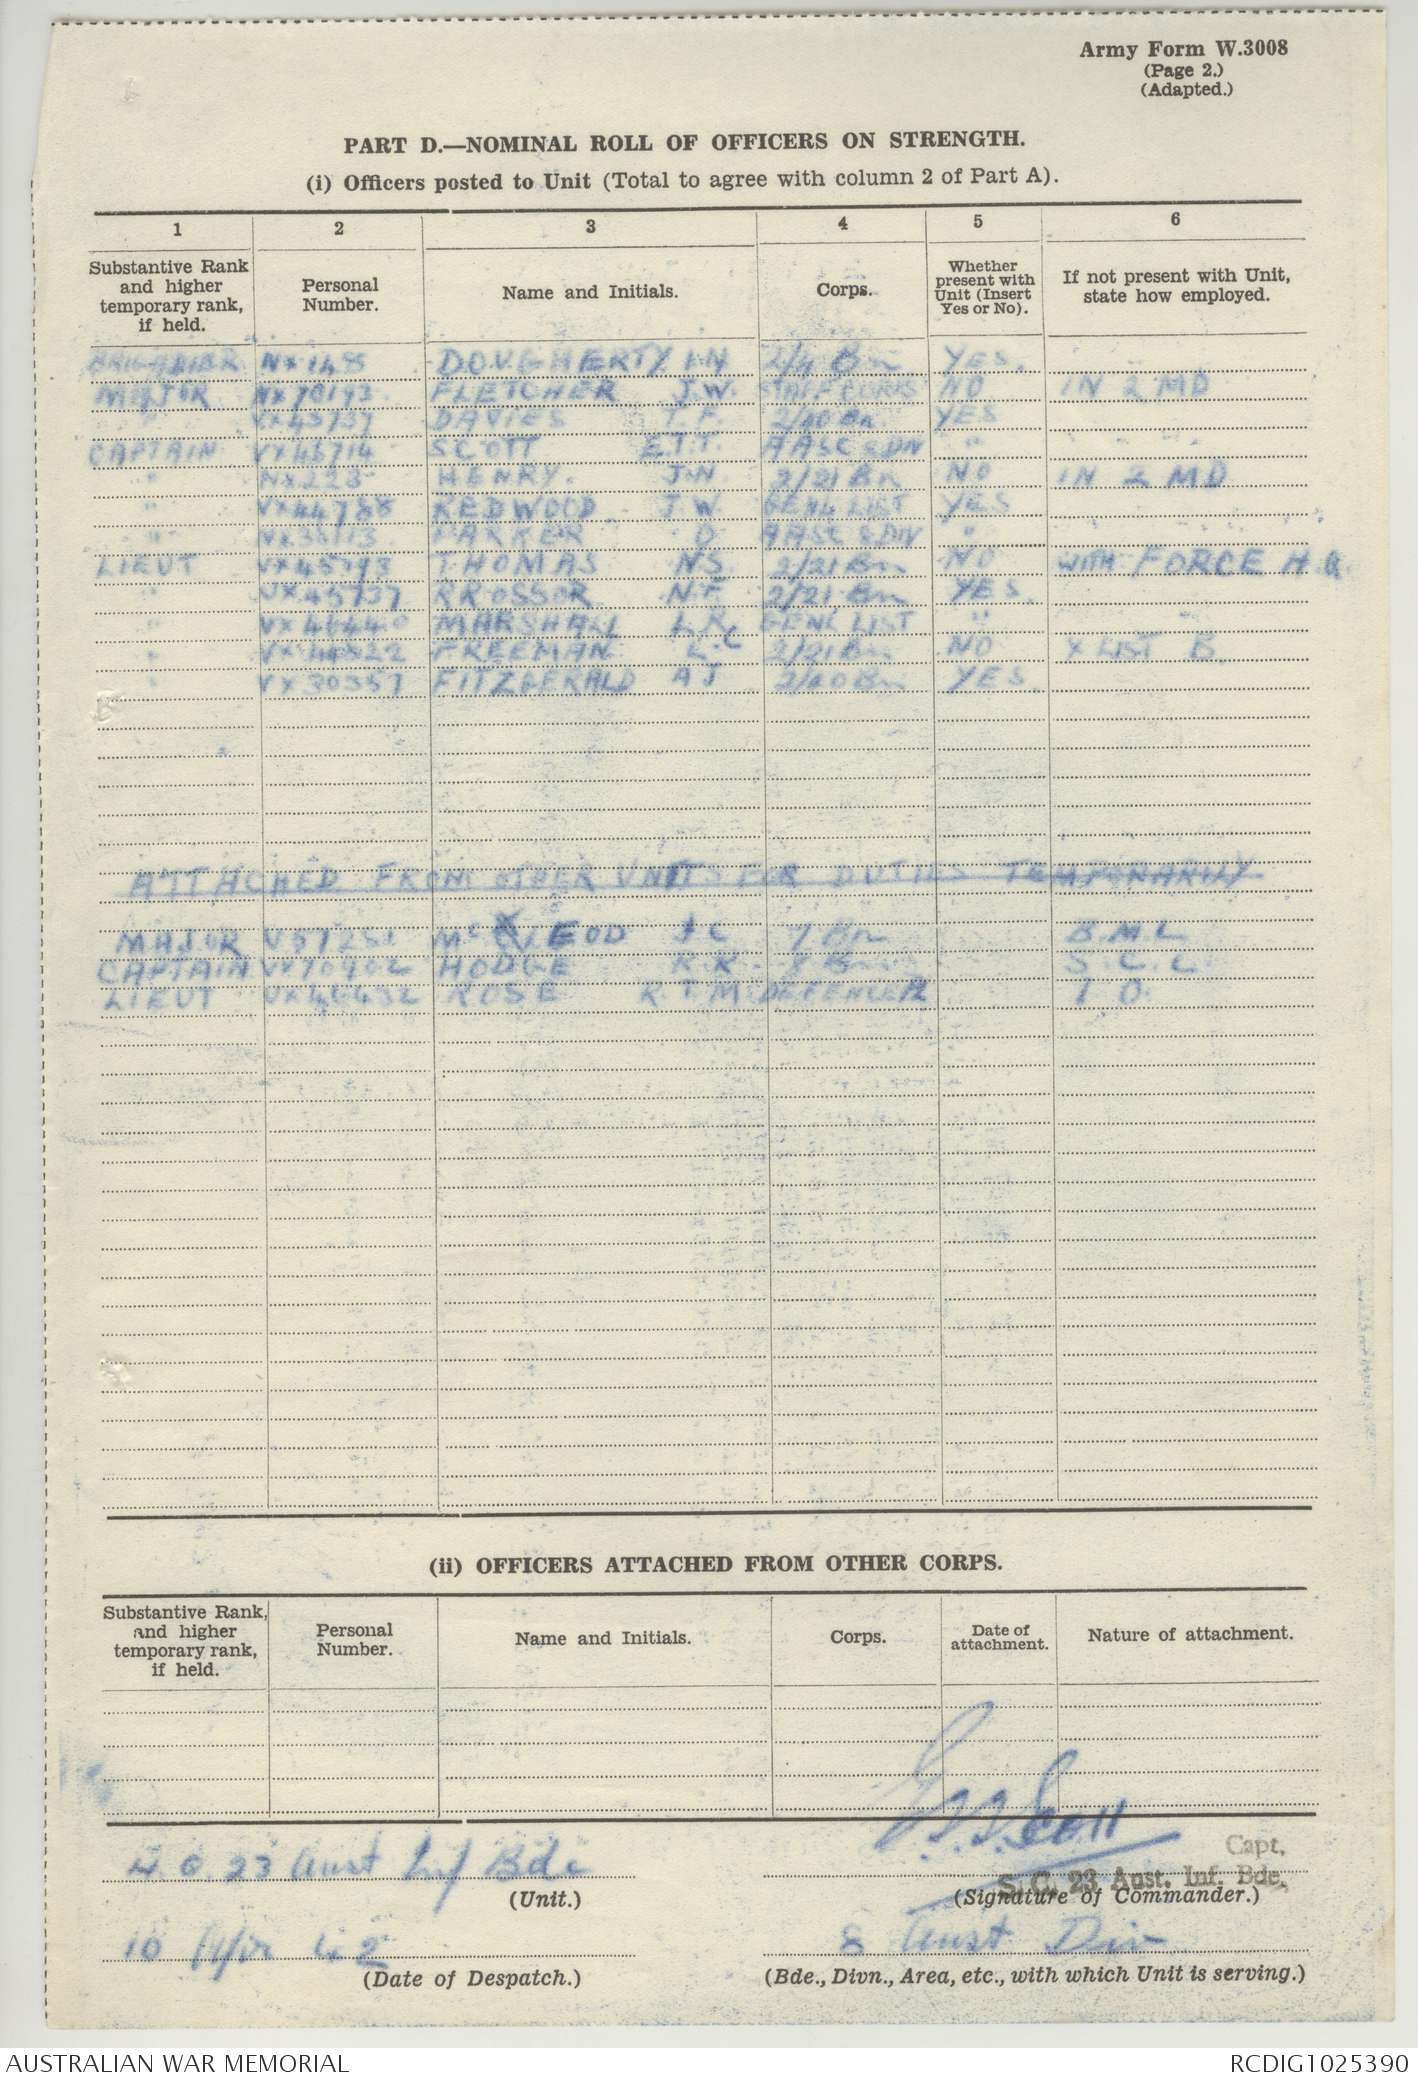 Army Form W.3008
(Page 2.)
(Adapted.)
PART D.—NOMINAL ROLL OF OFFICERS ON STRENGTH.
(i) Officers posted to Unit (Total to agree with column 2 of Part A).
1 2 3 4 5 6
Substantive Rank and higher temporary rank, if held. Personal Number. Name and Initials. Corps. Whether present with Unit (Insert Yes or No). If not present with Unit, state how employed.
BRIGADIER NX148 DOUGHERTY I.N 2/4 Bn YES.
MAJOR FLETCHER J.W. STAFF CORPS NO IN 2 MD
" DAVIES 2/40 Bn YES
CAPTAIN VX45714 SCOTT E.T.T. AASC 8 DIV "
" NX225 HENRY. J.N 2/21 Bn NO IN 2 MD
" VX44788 REDWOOD J W. GENL LIST YES
" PARKER D AASC 8 DIV "
LIEUT VX45793 THOMAS N S. 2/21 Bn NO WITH FORCE H.Q.
" VX45737 RROSSOR N.F. 2/21 Bn YES.
" MARSHALL L.R. GENL LIST "
" FREEMAN L.C 2/21 Bn NO X LIST B.
" VX30357 FITZGERALD A J 2/40 Bn YES.
ATTACHED FROM OTHER UNITS FOR DUTIES TEMPORARILY
MAJOR McLEOD 7 Bn B.M.L
CAPTAIN VX70902 HODGE R.K. 8 Bn S.C.L
LIEUT VX46432 ROSE R.T.M. I O.
(ii) OFFICERS ATTACHED FROM OTHER CORPS.
Substantive Rank, and higher temporary rank, if held. Personal Number. Name and Initials. Corps. Date of attachment. Nature of attachment.
Scott
Capt.
H.Q. 23 Aust Inf Bde
S.C. 23 Aust. Inf. Bde.
(Unit.) (Signature of Commander.)
10 Apr 42 8 Aust Div
(Date of Despatch.) (Bde., Divn., Area, etc., with which Unit is serving.)
AUSTRALIAN WAR MEMORIAL RCDIG1025390